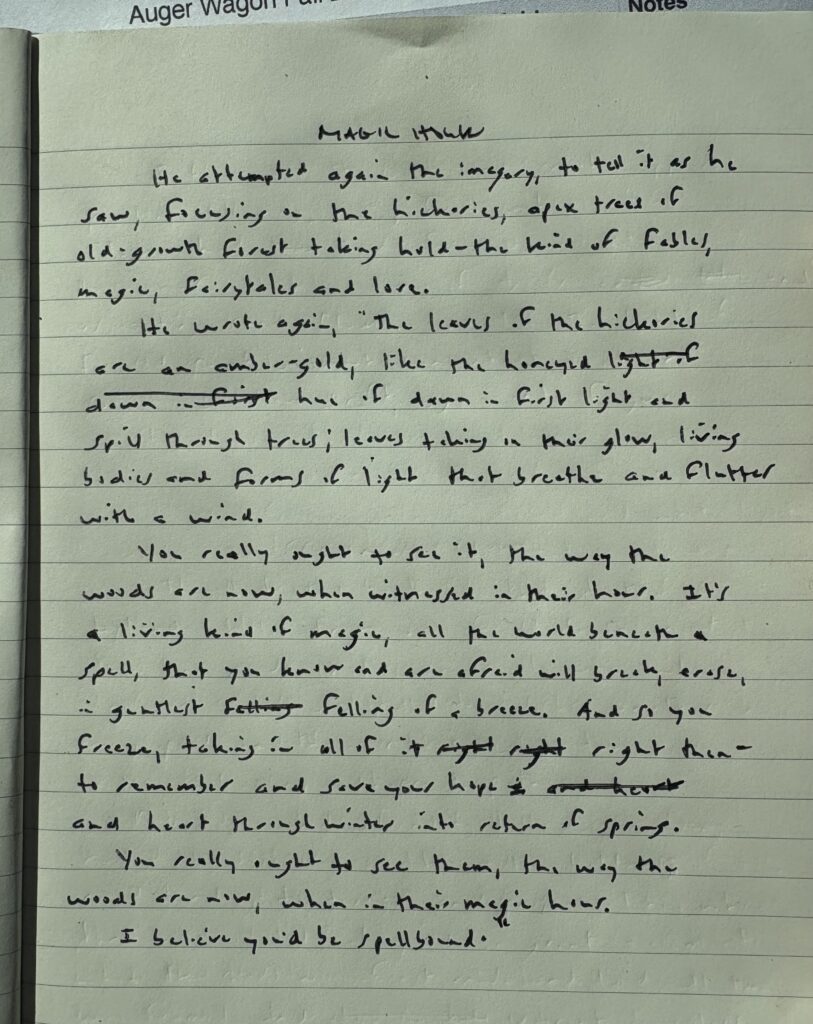 Auger Wagon
Notes
MAGIC HOUR
He attempted again the imagery, to tell it as he
saw, focusing on the hickories, apex trees of
old-growth forest taking hold-the kind of fables,
magic, fairytales and love.
He wrote again, "The leaves of the hickories
are an amber-gold, like the honeyed light of
dawn in first hue of dawn in first light and
spill through trees; leaves taking on their glow, living
bodies and forms of light that breathe and flutter
with a wind.
You really ought to see it, the way the
woods are now, when witnessed in their hour. It's
a living kind of magic, all the world beneath a
spell, that you know and are afraid will break, erase,
in gentlest falling felling of a breeze. And so you
freeze, taking in all of it right right right then-
to remember and save your hope and heart
and heart through winter into return of spring.
You really ought to see them, the way the
woods are now, when in their magic hour.
I believe you'd be spellbound."